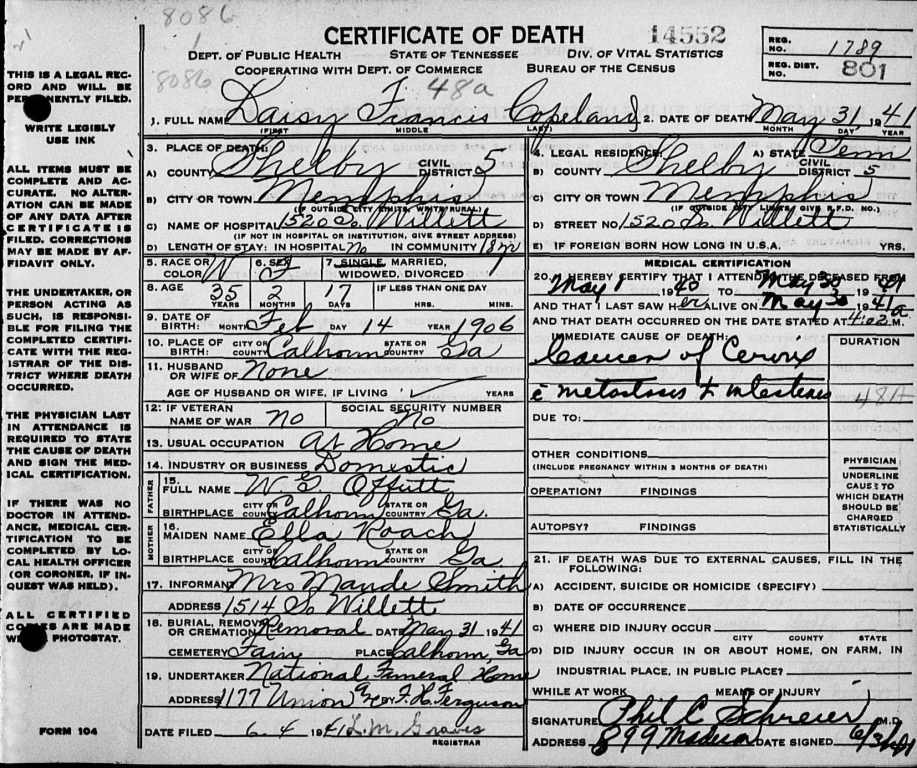 8086
1
8086
CERTIFICATE OF DEATH
14552
DEPT. OF PUBLIC HEALTH STATE OF TENNESSEE DIV. OF VITAL STATISTICS
COOPERATING WITH DEPT. OF COMMERCE BUREAU OF THE CENSUS
REG. NO. 1789
REG. DIST. NO. 801
48a
THIS IS A LEGAL RECORD AND WILL BE
PERMANENTLY FILED.
WRITE LEGIBLY
USE INK
ALL ITEMS MUST BE
COMPLETE AND AC-
CURATE. NO ALTER-
ATION CAN BE MADE
OF ANY DATA AFTER
CERTIFICATE IS
FILED. CORRECTIONS
MAY BE MADE BY AF-
FIDAVIT ONLY.
THE UNDERTAKER, OR
PERSON ACTING AS
SUCH, IS RESPONSI-
BLE FOR FILING THE
COMPLETED CERTIFI-
CATE WITH THE REG-
ISTRAR OF THE DIS-
TRICT WHERE DEATH
OCCURRED.
THE PHYSICIAN LAST
IN ATTENDANCE IS
REQUIRED TO STATE
THE CAUSE OF DEATH
AND SIGN THE MED-
ICAL CERTIFICATION.
IF THERE WAS NO
DOCTOR IN ATTEND-
ANCE, MEDICAL CER-
TIFICATION TO BE
COMPLETED BY LO-
CAL HEALTH OFFICER
(OR CORONER, IF IN-
QUEST WAS HELD).
ALL CERTIFIED
COPIES ARE MADE
PHOTOSTAT.
FORM 104
1. FULL NAME Daisy Francis Copeland 2. DATE OF DEATH May 31 1941
(FIRST) MIDDLE LAST) MONTH DAY YEAR
3. PLACE OF DEATH:
A) COUNTY Shelby CIVIL DISTRICT 5
B) CITY OR TOWN Memphis
(IF OUTSIDE CITY LIMITS, WRITE RURAL)
C) NAME OF HOSPITAL 1520 So Willett
(IF NOT IN HOSPITAL OR INSTITUTION, GIVE STREET ADDRESS)
D) LENGTH OF STAY: IN HOSPITAL No IN COMMUNITY 18 yr
4. LEGAL RESIDENCE: A) STATE Tenn
B) COUNTY Shelby CIVIL DISTRICT 5
C) CITY OR TOWN Memphis
(IF OUTSIDE CITY LIMITS, GIVE R.F.D. NO.)
D) STREET NO. 1520 So Willett
E) IF FOREIGN BORN HOW LONG IN U.S.A. YRS.
5. RACE OR COLOR W 6. SEX F 7. SINGLE, MARRIED, WIDOWED, DIVORCED
8. AGE 35 YEARS 2 MONTHS 17 DAYS IF LESS THAN ONE DAY HRS. MINS.
9. DATE OF BIRTH: MONTH Feb DAY 14 YEAR 1906
10. PLACE OF BIRTH: CITY OR COUNTY Calhoun STATE OR COUNTRY Ga
11. HUSBAND OR WIFE OF None
AGE OF HUSBAND OR WIFE, IF LIVING YEARS
12: IF VETERAN NAME OF WAR No SOCIAL SECURITY NUMBER No
13. USUAL OCCUPATION At Home
14. INDUSTRY OR BUSINESS Domestic
FATHER 15. FULL NAME Offutt
BIRTHPLACE CITY OR COUNTY Calhoun STATE OR COUNTRY Ga.
MOTHER 16. MAIDEN NAME Ella Roach
BIRTHPLACE CITY OR COUNTY Calhoun STATE OR COUNTRY Ga
17. INFORMANT Mrs Maude Smith
ADDRESS 1514 So Willett
18. BURIAL, REMOVAL OR CREMATION Removal DATE May 31 1941
CEMETERY Fain PLACE Calhoun, Ga
19. UNDERTAKER National Funeral Home
ADDRESS 1177 Union BY F. H. Ferguson
DATE FILED 6-4 1941 L. M. Graves
REGISTRAR
MEDICAL CERTIFICATION
20. I HEREBY CERTIFY THAT I ATTENDED THE DECEASED FROM
May 1 1940 TO May 30 1941
AND THAT I LAST SAW Her ALIVE ON May 30 1941
AND THAT DEATH OCCURRED ON THE DATE STATED AT 4:02 a M.
IMMEDIATE CAUSE OF DEATH: DURATION
Cancer of Cervix
c̄ metastasis + intestines 48A
DUE TO:
OTHER CONDITIONS
(INCLUDE PREGNANCY WITHIN 3 MONTHS OF DEATH)
OPERATION? FINDINGS
AUTOPSY? FINDINGS
PHYSICIAN
UNDERLINE
CAUSE TO
WHICH DEATH
SHOULD BE
CHARGED
STATISTICALLY
21. IF DEATH WAS DUE TO EXTERNAL CAUSES, FILL IN THE
FOLLOWING:
A) ACCIDENT, SUICIDE OR HOMICIDE (SPECIFY)
B) DATE OF OCCURRENCE
C) WHERE DID INJURY OCCUR
CITY COUNTY STATE
D) DID INJURY OCCUR IN OR ABOUT HOME, ON FARM, IN
INDUSTRIAL PLACE, IN PUBLIC PLACE?
WHILE AT WORK MEANS OF INJURY
SIGNATURE Phil C Schreier M.D.
ADDRESS 899 Madison DATE SIGNED 6/3/41